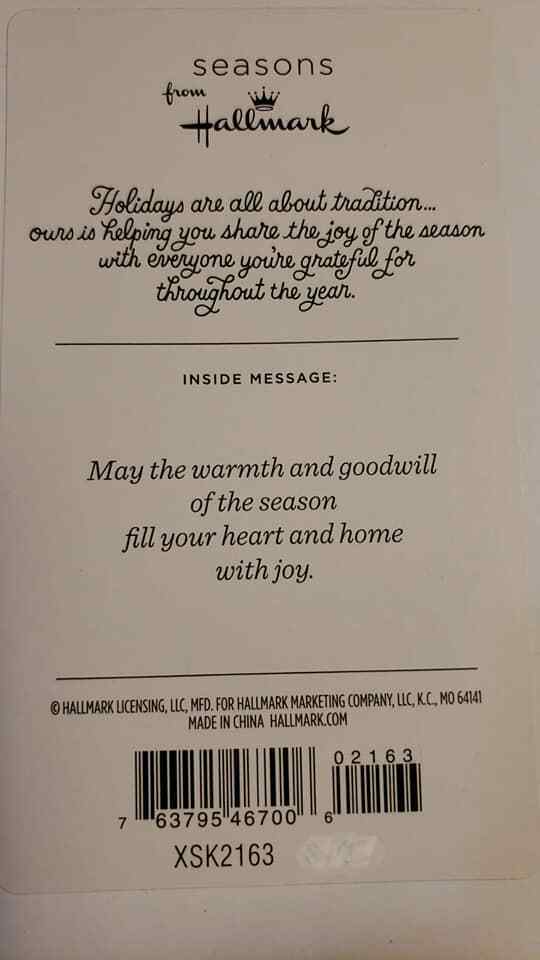 seasons
from
Hallmark
Holidays are all about tradition...
ours is helping you share the joy of the season
with everyone you're grateful for
throughout the year.
INSIDE MESSAGE:
May the warmth and goodwill
of the season
fill your heart and home
with joy.
© HALLMARK LICENSING, LLC, MFD. FOR HALLMARK MARKETING COMPANY, LLC, K.C., MO 64141
MADE IN CHINA HALLMARK.COM
02163
7 63795 46700 6
XSK2163